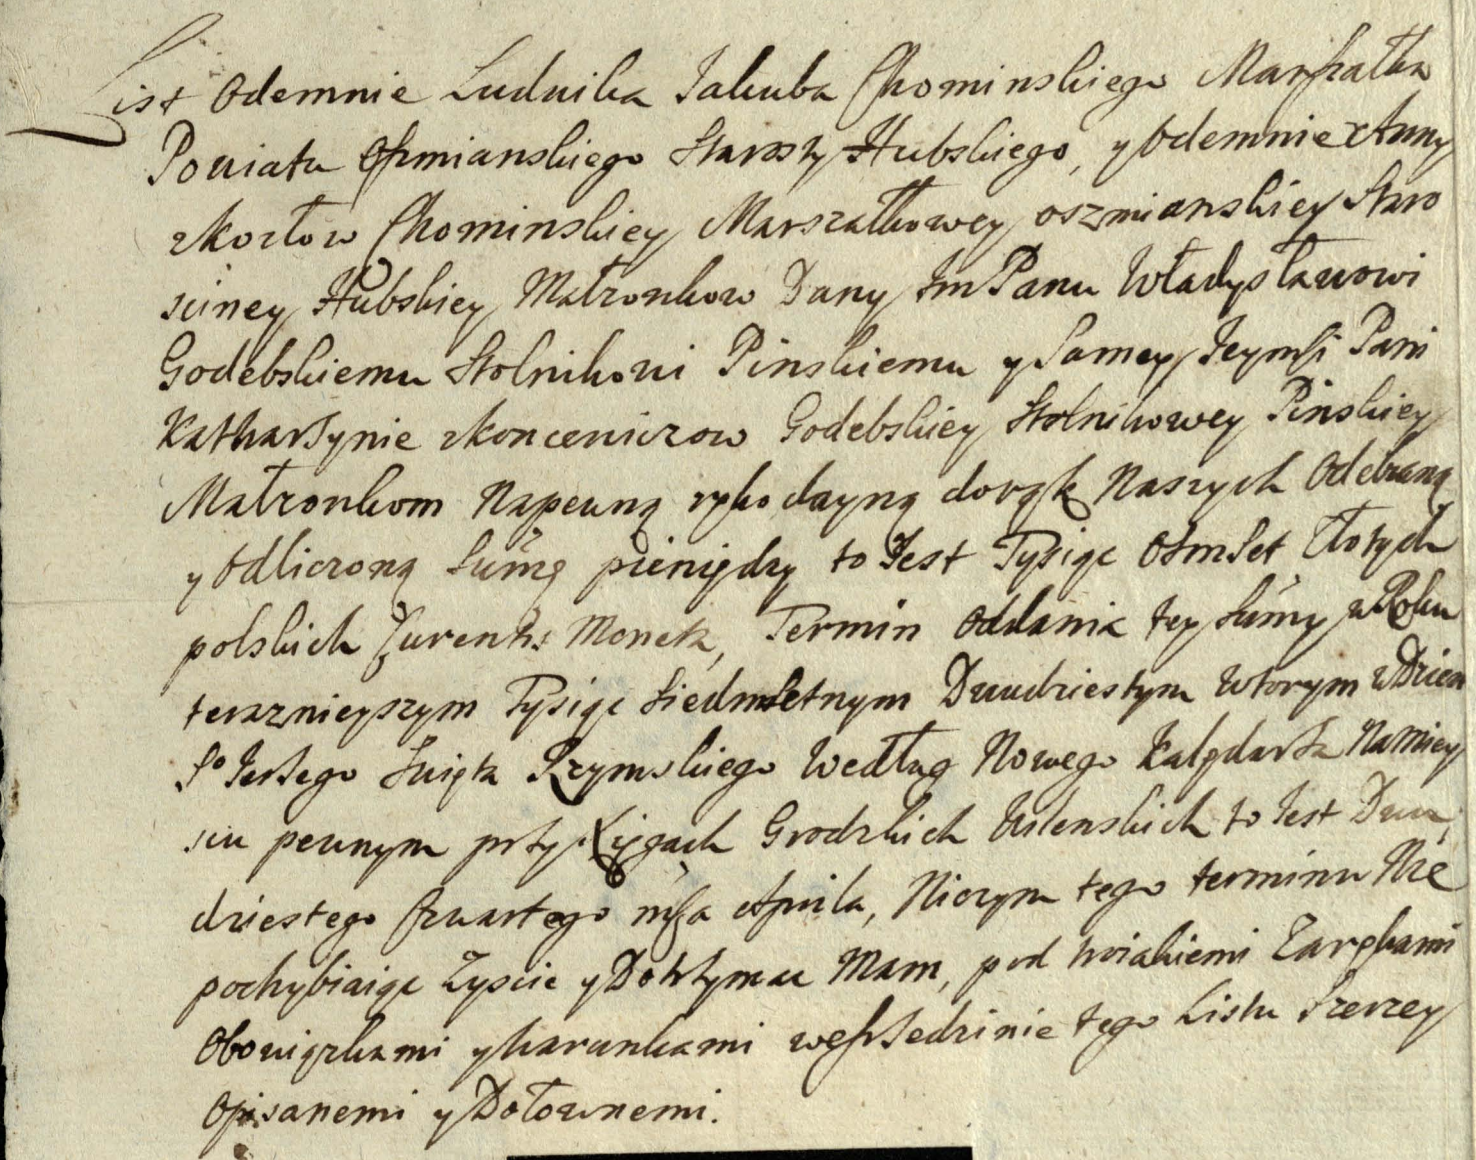 List Odemnie Ludwika Jakuba Chominskiego Marszałka
Powiatu Oszmianskiego Starosty Hubskiego, y Odemnie Anny
zKozłow Chominskiey Marszałkowey oszmianskiey Staro
sciney Hubskiey Małzonkow Dany Jm Panu Władysławowi
Godebskiemu Stolnikowi Pinskiemu y Samey Jeymsci Pani
Katharzynie zKoncewiczow Godebskiey Stolnikowey Pinskiey
Małzonkom Napewną rękodayną dorąk Naszych Odebraną
y Odliczoną Summę pieniędzy to Jest Tysiąc Osmset Złotych
polskich Currentis Monetæ, Termin Oddania tey Summy wRoku
teraznieyszym Tysiąc Siedmsetnym Dwudziestym wtorym wDzien
So Jerzego Swięta Rzymskiego Według Nowego Kalędarza Namiey
scu pewnym przyXięgach Grodzkich Wilenskich to Jest Dwu
dziestego Czwartego msca Aprila, Niczym tego terminu Nie
pochybiaiąc Zyscic y Dotrzymac Mam, pod troiakiemi Zarękami
Obowiązkami ywarunkami weśrzedzinie tego Listu Szerzey
Opisanemi y Dołownemi.